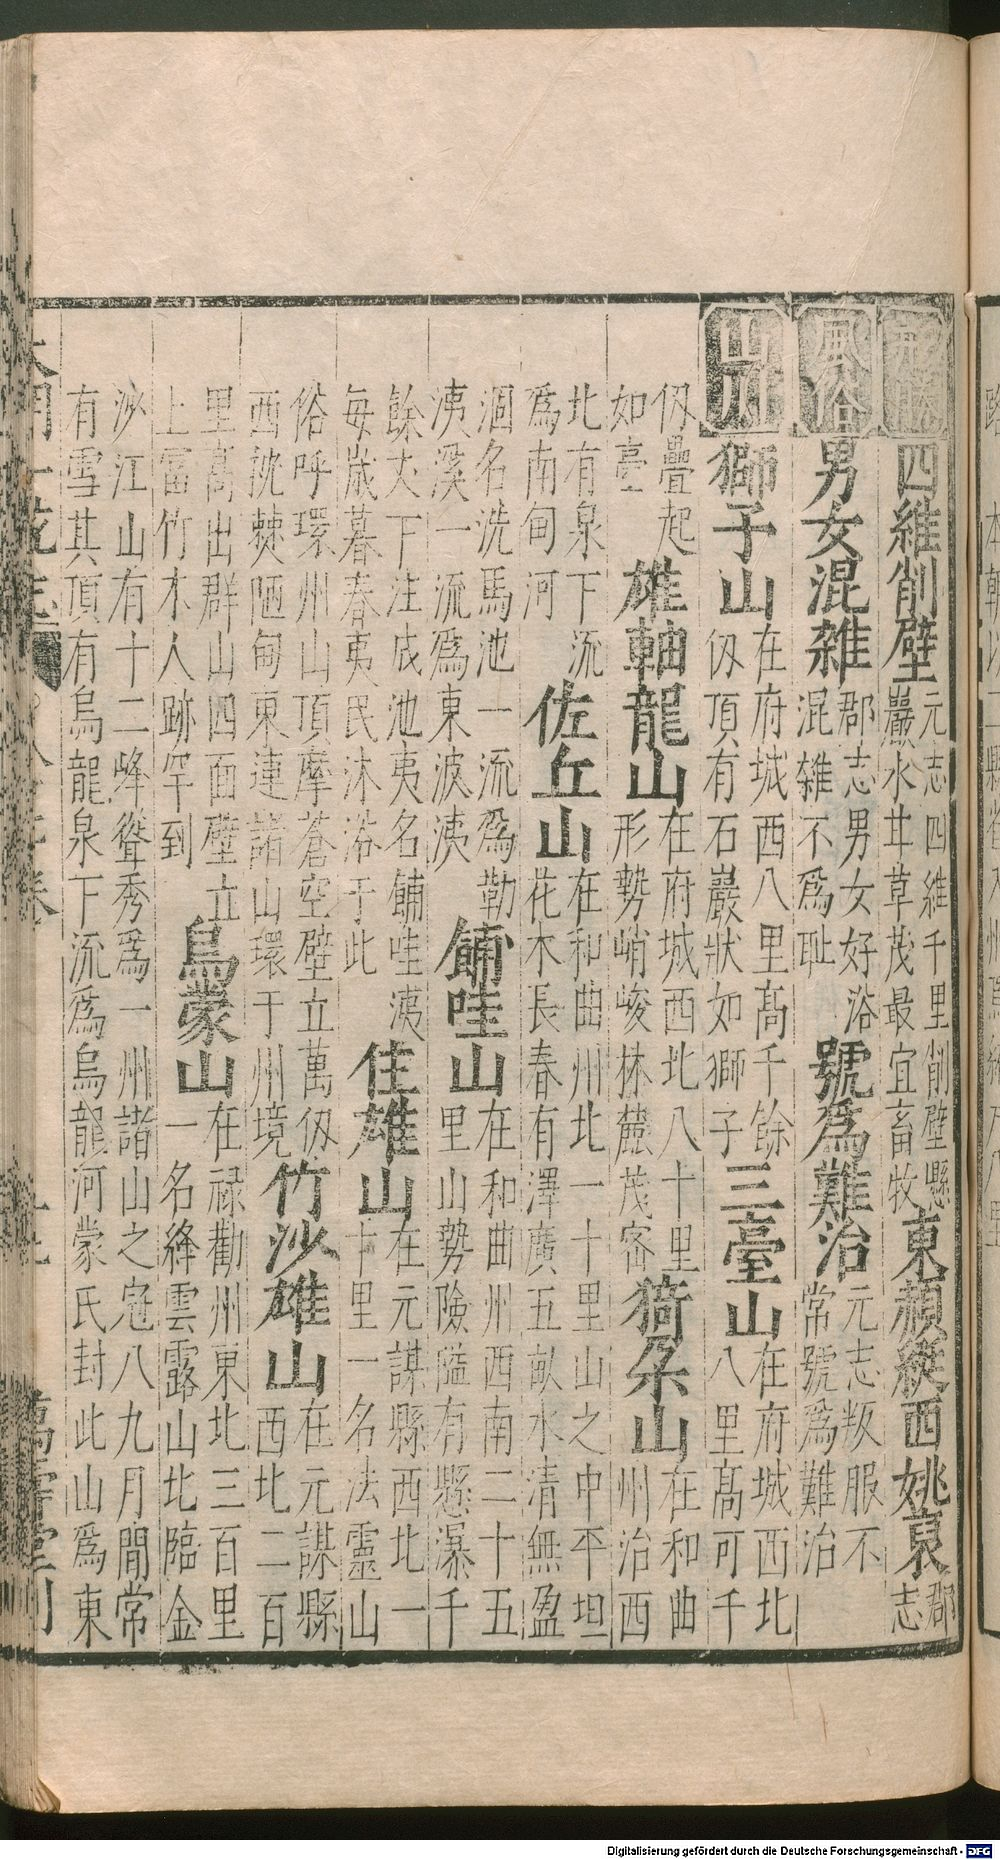 形勝四維削壁元志四維千里削壁懸巖水甘草茂最宜畜牧東䫫縱西姚㐮郡志
風俗男女混雜郡志男女好浴混雜不爲耻號爲難治元志叛服不常號爲難治
山川獅子山在府城西八里髙千餘仭頂有石巖狀如獅子三臺山在府城西北八里髙可千
仭疊起如臺雄軸龍山在府城西北八十里形勢峭峻林麓茂宻猗朶山在和曲州治西
北有泉下流爲南甸河佐丘山在和曲州北一十里山之中平坦花木長春有澤廣五畝水清無盈
涸名洗馬池一流爲勒洟溪一流爲東波洟餔哇山在和曲州西南二十五里山勢險隘有懸瀑千
餘丈下注成池夷名餔哇洟毎歳暮春夷民沐浴于此住雄山在元謀縣西北一十里一名法靈山
俗呼環州山頂摩蒼空壁立萬仭西詵棘陋甸東連諸山環于州境竹沙雄山在元謀縣西北二百
里髙出群山四面壁立上富竹木人跡罕到烏蒙山在禄勸州東北三百里一名絳雲露山北臨金
沙江山有十二峰聳秀爲一州諸山之冠八九月間常有雪其頂有烏龍泉下流爲烏龍河蒙氏封此山爲東
萬壽堂刊
Digitalisierung gefördert durch die Deutsche Forschungsgemeinschaft - DFG